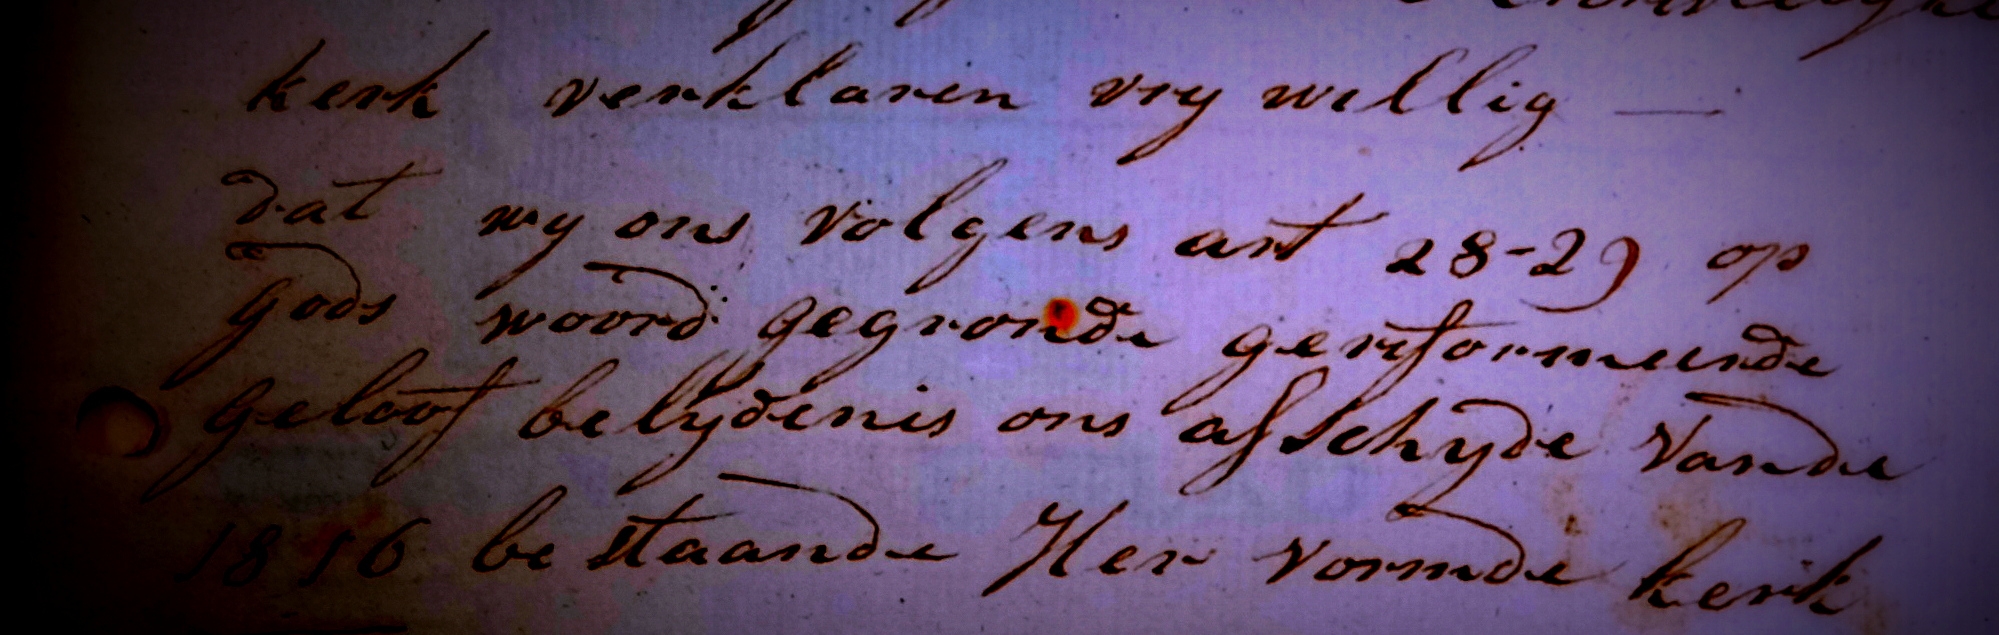 kerk verklaren vry willig —
dat wy ons volgens art 28-29 op
gods woord gegronde geriformeerde
geloof belydenis ons afschyde vande
1816 bestaande Her vormde kerk